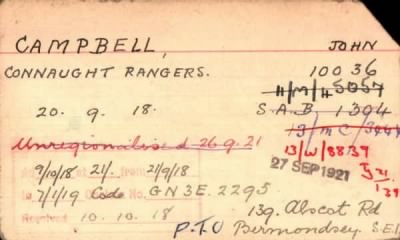 CAMPBELL, JOHN
CONNAUGHT RANGERS. 10036
11/M/5057
20. 9. 18. S.A.B 1304
13/MC/3444
Unregionalised 26.9.21
13/W/8839
9/10/18 21/- from 21/9/18
27 SEP 1921
to 7/1/19 Code No. GN3E.2295
139. Abscot Rd
Received 10.10.18 P.T.O Bermondsey S.E.1